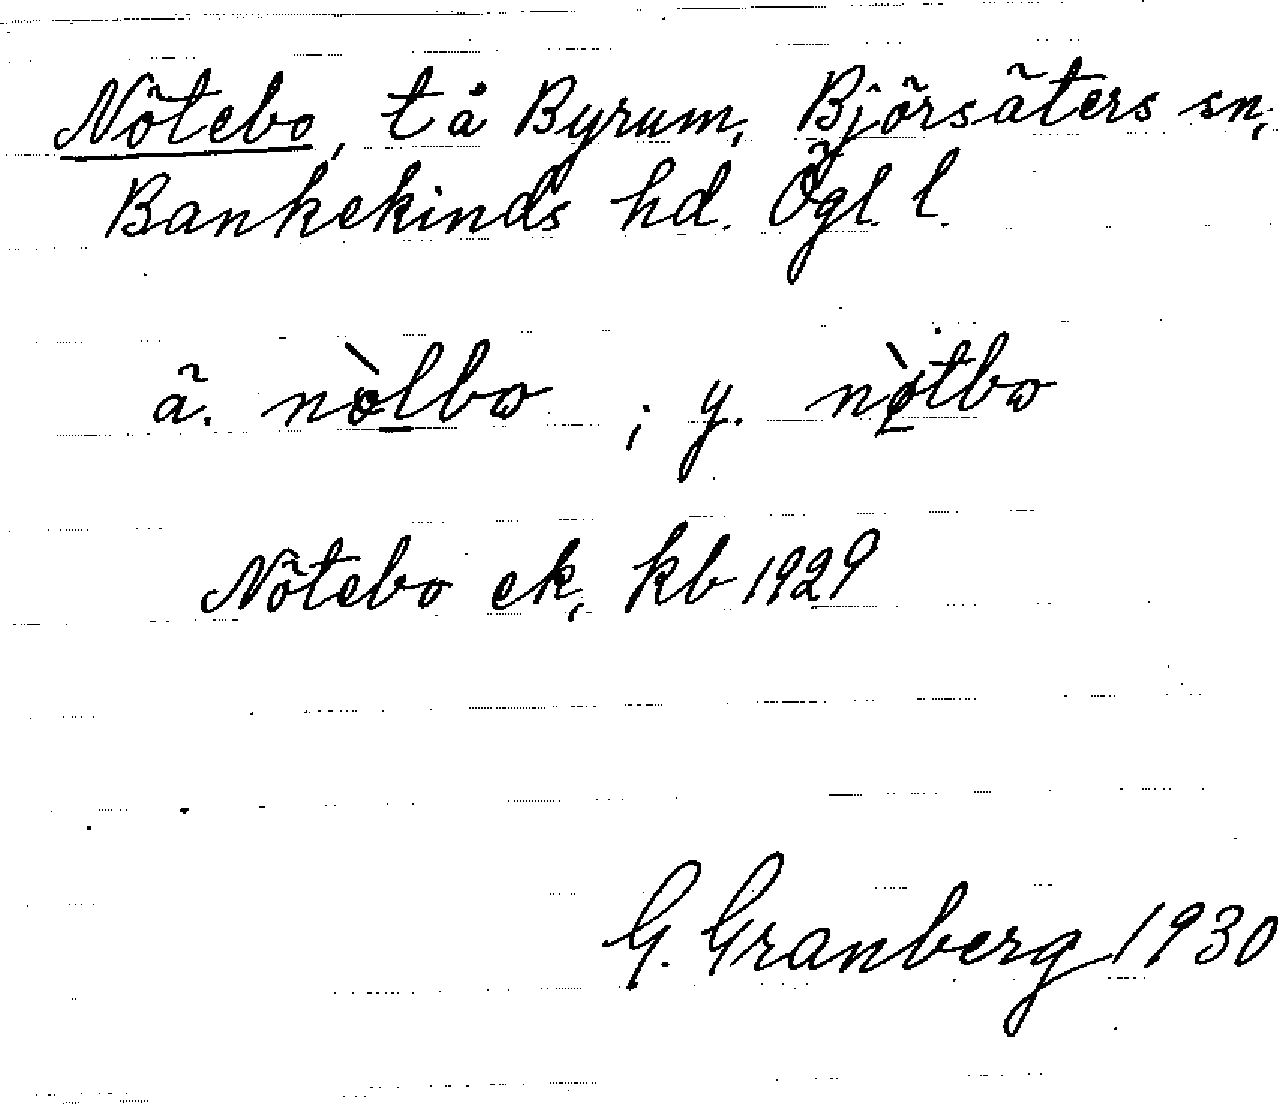 Nötebo, t å Byrum, Björsäters sn,
Bankekinds hd. Ögl. l.
ä. nòlbω ; y. nø̀tbω
Nötebo ek, kb 1929
G. Granberg 1930